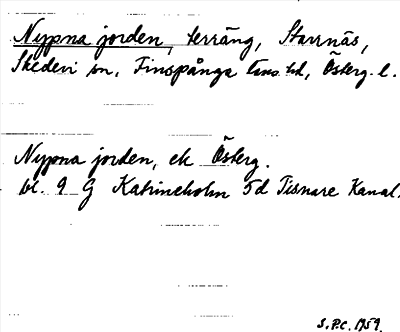 Nypna jorden, terräng, Starrnäs,
Skedevi sn, Finspånga läns hd, Österg. l.
Nypna jorden, ek Österg.
bl. 9 G Katrineholm 5d Tisnare Kanal.
S.P.C. 1959.